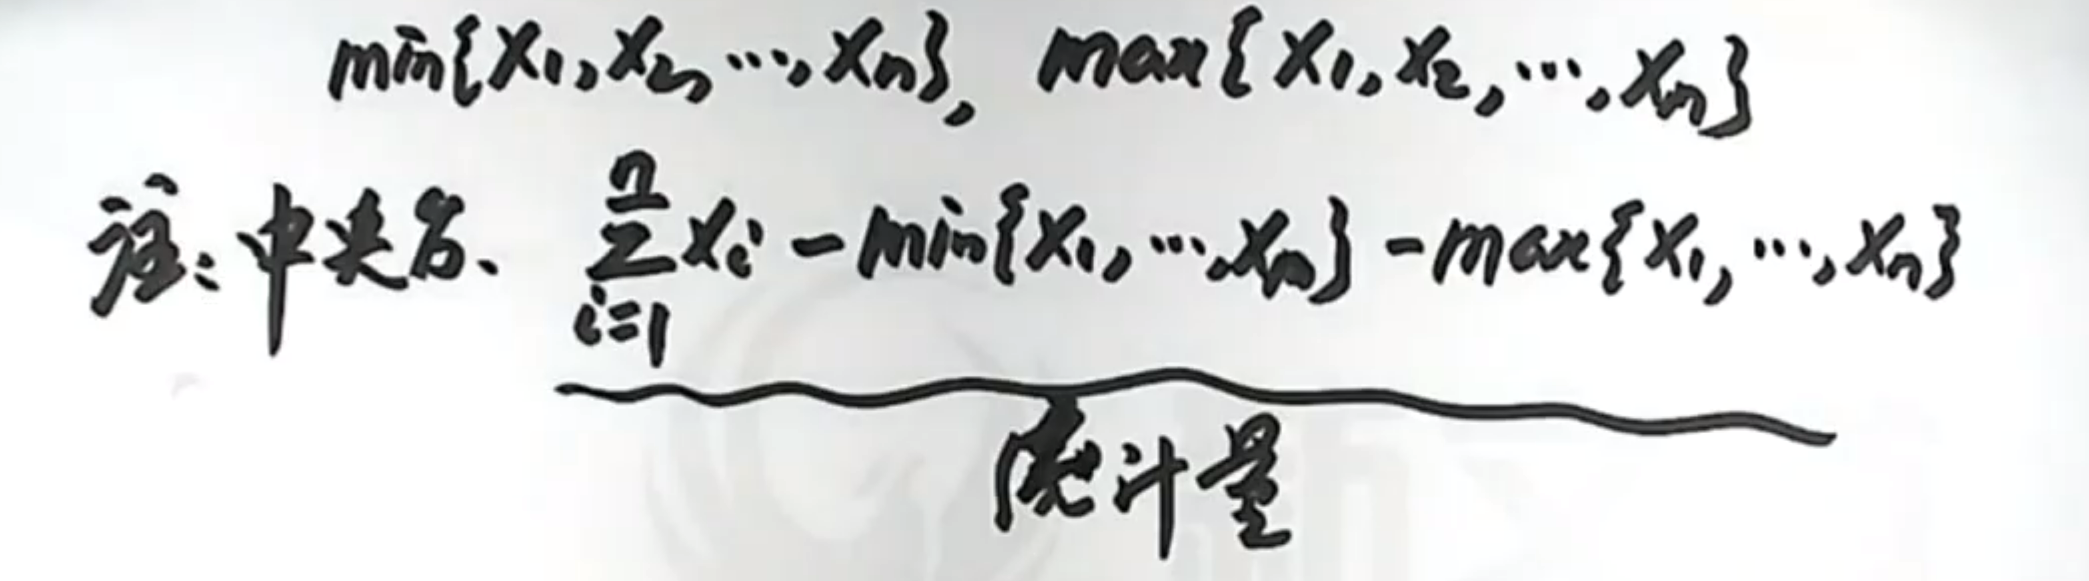 min{X₁,X₂,…,Xₙ}, max{X₁,X₂,…,Xₙ}
注:中央台、 ∑ᵢ₌₁ⁿ Xᵢ - min{X₁,…,Xₙ} - max{X₁,…,Xₙ}
统计量